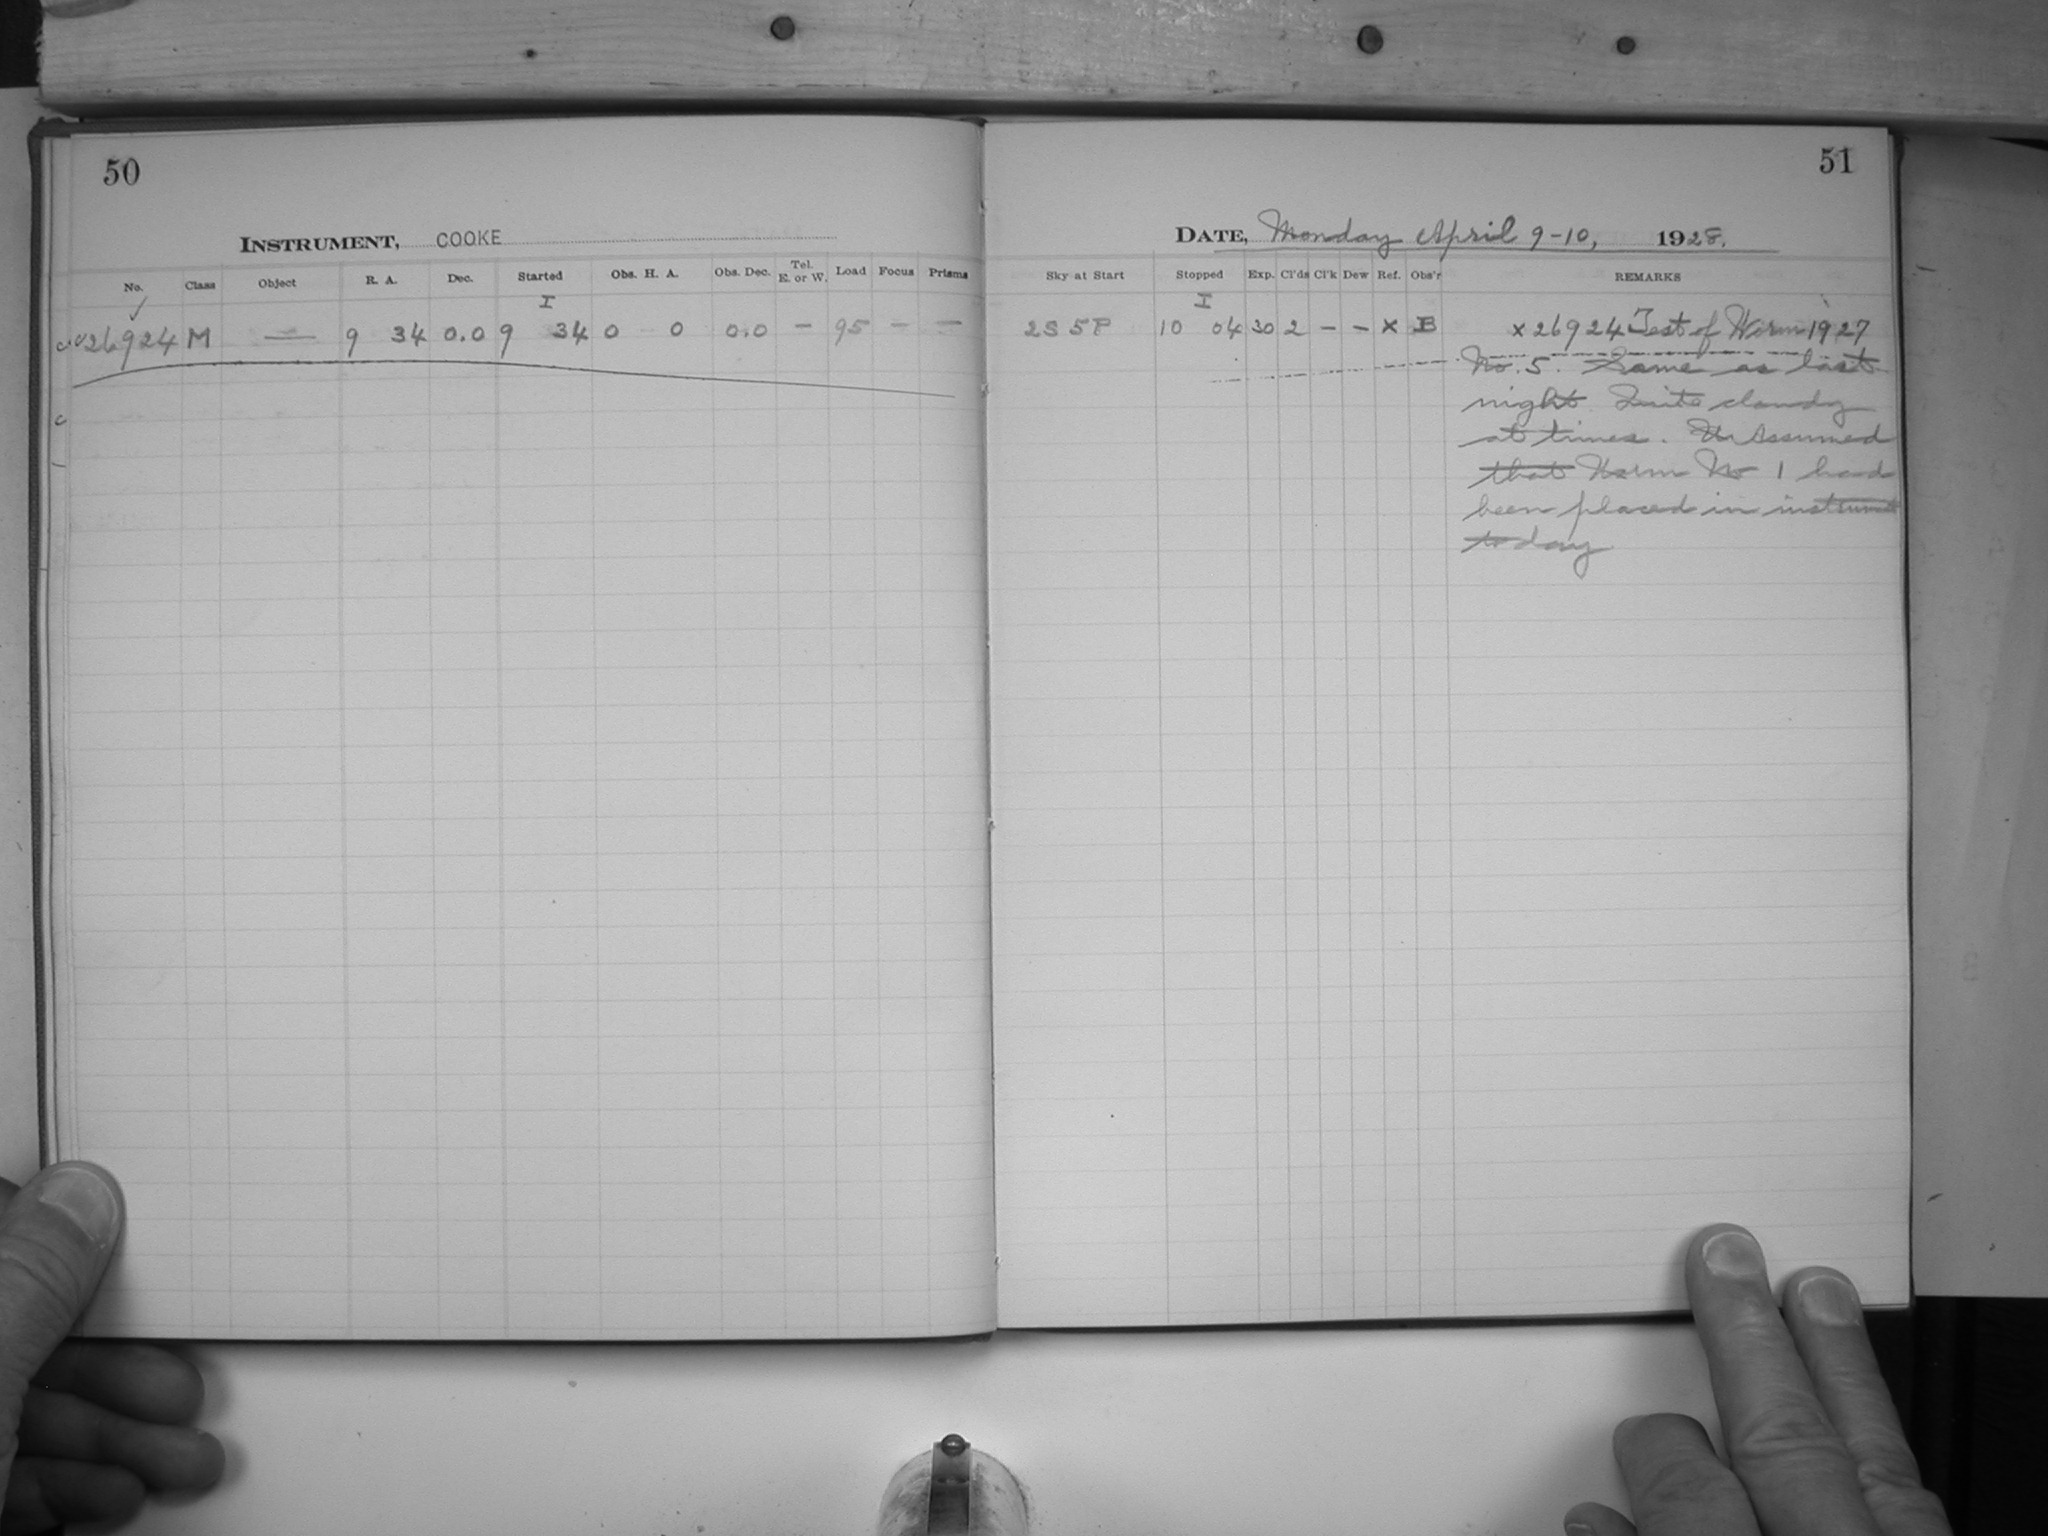 50
INSTRUMENT, COOKE
No. Class Object R. A. Dec. Started Obs. H. A. Obs. Dec. Tel. E. or W. Load Focus Prisms
I
26924 M — 9 34 0.0 9 34 0 0 0.0 – 95 – –
51
DATE, Monday April 9-10, 1928.
Sky at Start Stopped Exp. Cl'ds Cl'k Dew Ref. Obs'r REMARKS
I
2S 5P 10 04 30 2 – – x B x 26924 Test of Worm 1927
No. 5. Same as last
night Quite cloudy
at times. Assumed
that Worm No 1 had
been placed in instrument
today